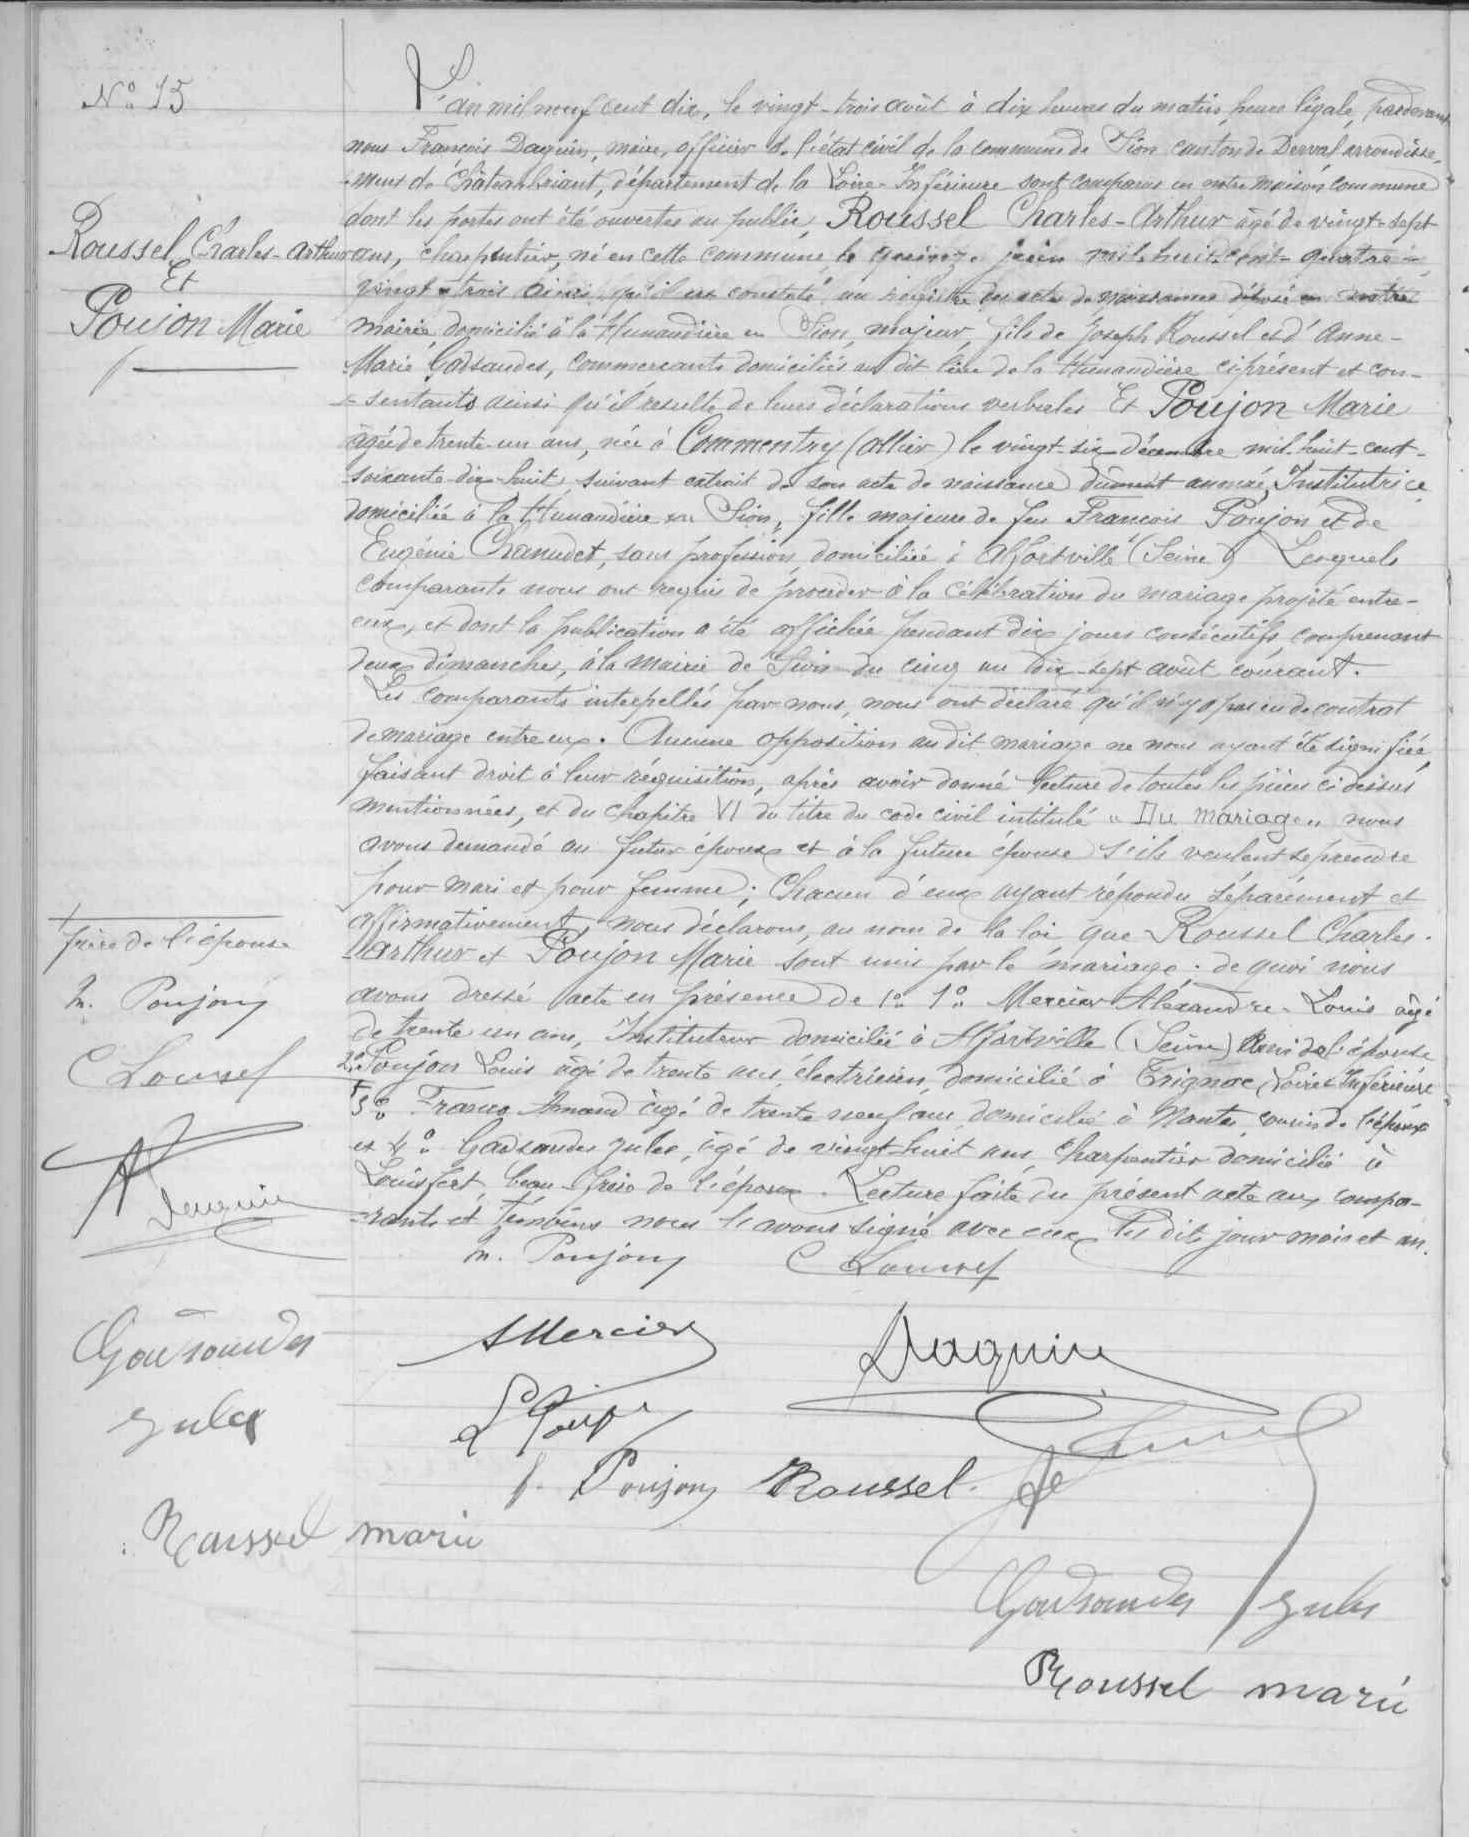 N° 15
Roussel Charles-Arthur
Et
Poujon Marie
L'an mil neuf cent dix, le vingt-trois août à dix heures du matin, heure légale, pardevant
nous François Daguin, maire, officier de l'état civil de la commune de Sion canton de Derval arrondisse-
-ment de Châteaubriant, département de la Loire-Inférieure sont comparus en notre maison commune
dont les portes ont été ouvertes au public, Roussel Charles-Arthur âgé de vingt-sept
ans, charpentier, né en cette commune le quinze juin mil huit cent quatre-
vingt-trois ainsi qu'il est constaté au registre des actes de naissance déposé en notre
mairie, domicilié à la Hunaudière en Sion, majeur, fils de Joseph Roussel et d'Anne-
Marie Gadsaudes, commerçants domiciliés au dit lieu de la Hunaudière ci-présent et con-
-sentants ainsi qu'il résulte de leurs déclarations verbales Et Poujon Marie
âgée de trente un ans, née à Commentry (Allier) le vingt-six décembre mil huit-cent-
soixante-dix-huit, suivant extrait de son acte de naissance dûment annexé, Institutrice
domiciliée à la Hunaudière en Sion, fille majeure de feu François Poujon et de
Eugénie Chanudet, sans profession, domiciliée à Alfortville (Seine) Lesquels
comparants nous ont requis de procéder à la célébration du mariage projeté entre-
eux, et dont la publication a été affichée pendant dix jours consécutifs, comprenant
deux dimanches, à la mairie de Sion du cinq au dix-sept août courant.
Les comparants interpellés par nous, nous ont déclaré qu'il n'y a pas eu de contrat
de mariage entre eux. Aucune opposition au dit mariage ne nous ayant été signifiée,
faisant droit à leur réquisition, après avoir donné lecture de toutes les pièces ci dessus
mentionnées, et du chapitre VI du titre du code civil intitulé "Du mariage" nous
avons demandé au futur époux et à la future épouse s'ils veulent se prendre
pour mari et pour femme; Chacun d'eux ayant répondu séparément et
affirmativement, nous déclarons, au nom de la loi que Roussel Charles-
-Arthur et Poujon Marie sont unis par le mariage. de quoi nous
avons dressé acte en présence de 1° 1° Mercier Alexandre-Louis âgé
de trente un ans, Instituteur domicilié à Alfortville (Seine) Ami de l'épouse
2° Poujon Louis âgé de trente ans, électricien, domicilié à Trignac, Loire-Inférieure
3° Franco Amand âgé de trente neuf ans domicilié à Nantes cousin de l'époux
et 4° Gadsaudes Jules, âgé de vingt-huit ans, charpentier domicilié à
Louisfert beau-frère de l'époux. Lecture faite du présent acte aux compa-
-rants et témoins nous l'avons signé avec eux les dits jour mois et an.
frère de l'épouse
m. Poujon
C Roussel
Gadsaudes
Jules
Roussel marie
m. Poujon C Roussel
A Mercier Daguin
L Poujon
f. Poujon Roussel
Gadsaudes Jules
Roussel marie